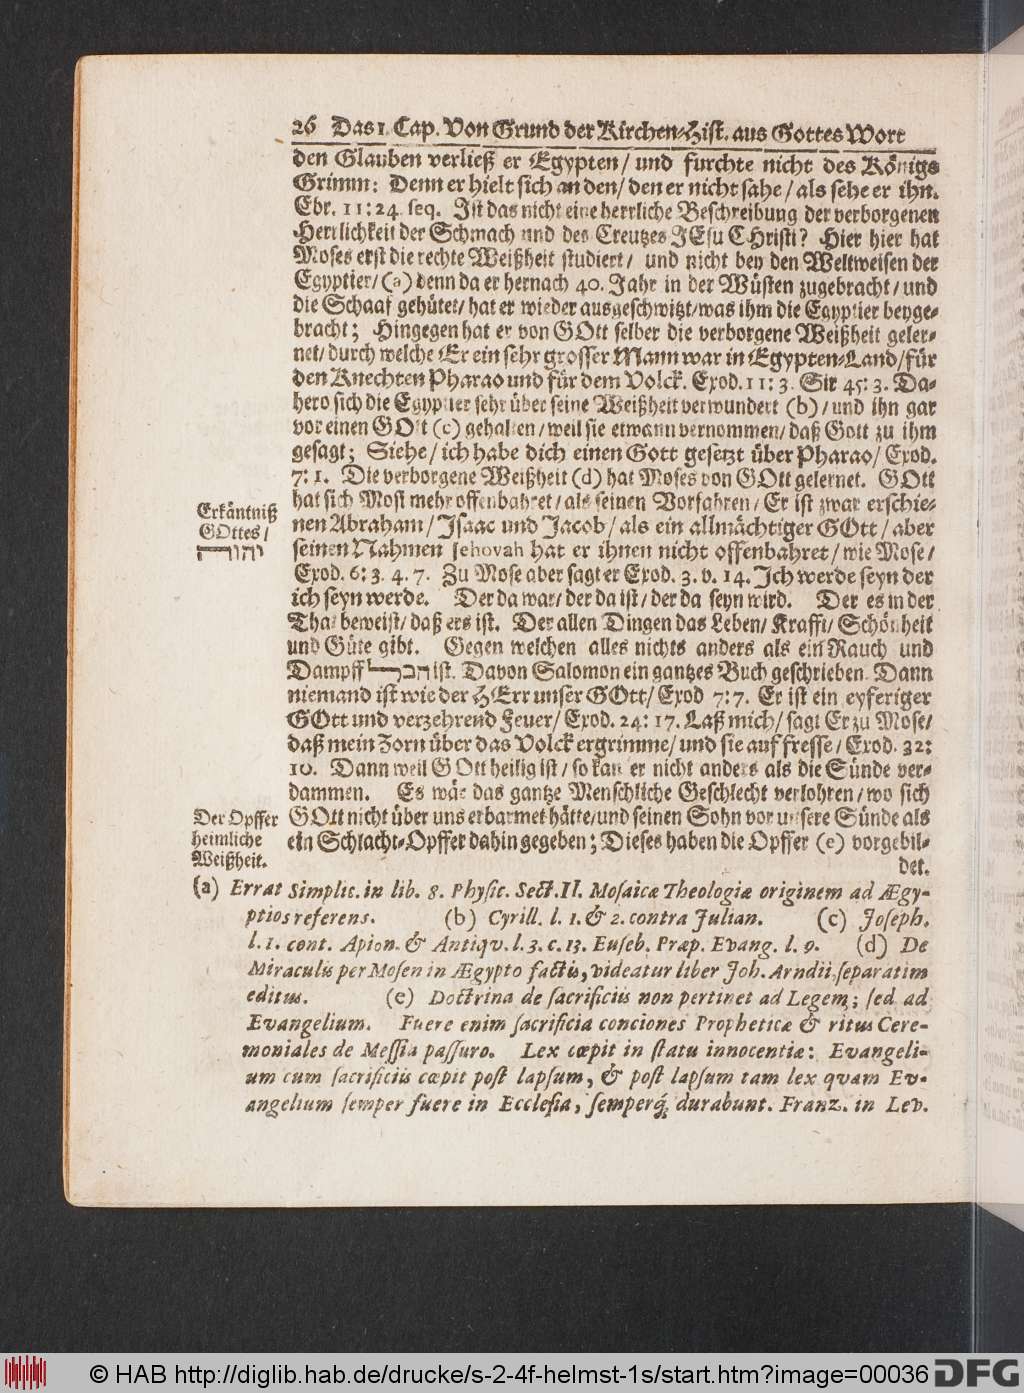 26 Das 1. Cap. Von Grund der Kirchen-Hist. aus Gottes Wort
den Glauben verließ er Egypten / und furchte nicht des Königs
Grimm: Denn er hielt sich an den / den er nicht sahe / als sehe er ihn.
Ebr. 11:24. seq. Ist das nicht eine herrliche Beschreibung der verborgenen
Herrlichkeit der Schmach und des Creutzes JEsu CHristi? Hier hier hat
Moses erst die rechte Weißheit studiert / und nicht bey den Weltweisen der
Egyptier / (a) denn da er hernach 40. Jahr in der Wüsten zugebracht / und
die Schaaf gehütet / hat er wieder ausgeschwitzt / was ihm die Egyptier beyge-
bracht; Hingegen hat er von GOtt selber die verborgene Weißheit geler-
net / durch welche Er ein sehr grosser Mann war in Egypten-Land / für
den Knechten Pharao und für dem Volck. Exod. 11: 3. Sir 45: 3. Da-
hero sich die Egyptier sehr über seine Weißheit verwundert (b) / und ihn gar
vor einen GOtt (c) gehalten / weil sie etwann vernommen / daß Gott zu ihm
gesagt; Siehe / ich habe dich einen Gott gesetzt über Pharao / Exod.
7: 1. Die verborgene Weißheit (d) hat Moses von GOtt gelernet. GOtt
hat sich Mosi mehr offenbahret / als seinen Vorfahren / Er ist zwar erschie-
Erkäntniß
GOttes /
יהוה
nen Abraham / Isaac und Jacob / als ein allmächtiger GOtt / aber
seinen Nahmen Jehovah hat er ihnen nicht offenbahret / wie Mose /
Exod. 6: 3. 4. 7. Zu Mose aber sagt er Exod. 3. v. 14. Ich werde seyn der
ich seyn werde. Der da war / der da ist / der da seyn wird. Der es in der
That beweist / daß ers ist. Der allen Dingen das Leben / Krafft / Schönheit
und Güte gibt. Gegen welchen alles nichts anders als ein Rauch und
Dampff הבל ist. Davon Salomon ein gantzes Buch geschrieben. Dann
niemand ist wie der HErr unser GOtt / Exod 7: 7. Er ist ein eyferiger
GOtt und verzehrend Feuer / Exod. 24: 17. Laß mich / sagt Er zu Mose /
daß mein Zorn über das Volck ergrimme / und sie auffresse / Exod. 32:
10. Dann weil GOtt heilig ist / so kan er nicht anders als die Sünde ver-
dammen. Es wäre das gantze Menschliche Geschlecht verlohren / wo sich
Der Opffer
heimliche
Weißheit.
GOtt nicht über uns erbarmet hätte / und seinen Sohn vor unsere Sünde als
ein Schlacht-Opffer dahin gegeben; Dieses haben die Opffer (e) vorgebil-
det.
(a) Errat Simplic. in lib. 8. Physic. Sect. II. Mosaicæ Theologiæ originem ad Ægy-
ptios referens. (b) Cyrill. l. 1. & 2. contra Julian. (c) Joseph.
l. 1. cont. Apion. & Antiqv. l. 3. c. 13. Euseb. Præp. Evang. l. 9. (d) De
Miraculis per Mosen in Ægypto factis, videatur liber Joh. Arndii separatim
editus. (e) Doctrina de sacrificiis non pertinet ad Legem; sed ad
Evangelium. Fuere enim sacrificia conciones Propheticæ & ritus Cere-
moniales de Messia passuro. Lex cœpit in statu innocentiæ: Evangeli-
um cum sacrificiis cœpit post lapsum, & post lapsum tam lex qvam Ev-
angelium semper fuere in Ecclesia, semperq́; durabunt. Franz. in Lev.
© HAB http://diglib.hab.de/drucke/s-2-4f-helmst-1s/start.htm?image=00036 DFG